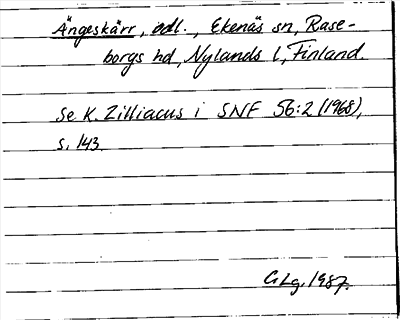 Ängeskärr, odl., Ekenäs sn, Rase-
borgs hd, Nylands l, Finland.
Se K. Zilliacus i SNF 56:2 (1968),
s. 143.
GLg. 1987.